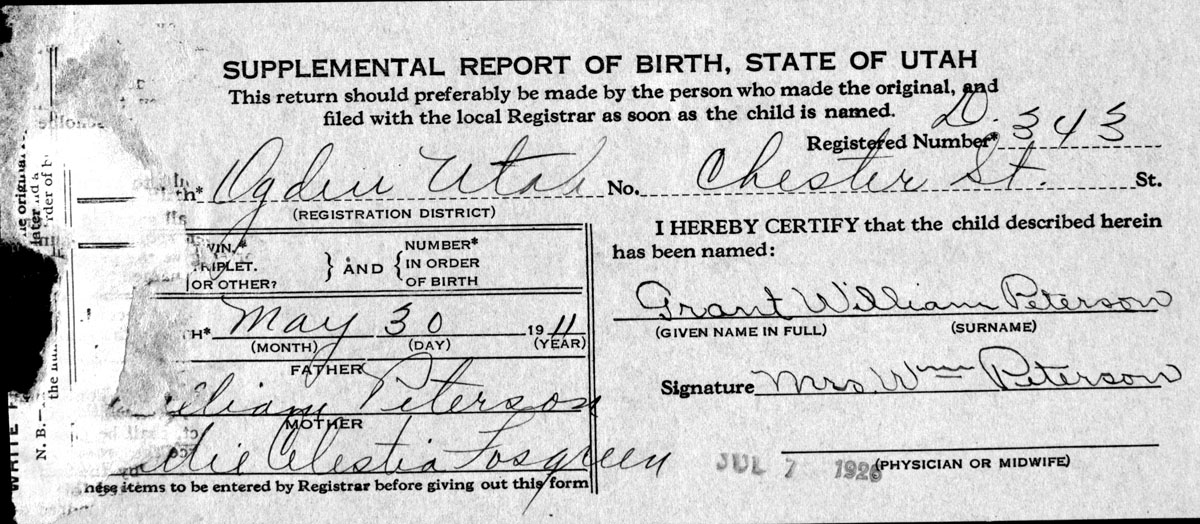 SUPPLEMENTAL REPORT OF BIRTH, STATE OF UTAH
This return should preferably be made by the person who made the original, and
filed with the local Registrar as soon as the child is named.
Registered Number* D. 343
th* Ogden Utah No. Chester St. St.
(REGISTRATION DISTRICT)
I HEREBY CERTIFY that the child described herein
has been named:
WIN,*
RIPLET.
OR OTHER?
} AND {
NUMBER*
IN ORDER
OF BIRTH
Grant William Peterson
(GIVEN NAME IN FULL) (SURNAME)
H* May 30 1911
(MONTH) (DAY) (YEAR)
FATHER
lliam Peterson
Signature Mrs. Wm Peterson
MOTHER
Celestia Fosgreen
JUL 7 1926
(PHYSICIAN OR MIDWIFE)
hese items to be entered by Registrar before giving out this form
WRITE
N. B.—
the
later
order of b